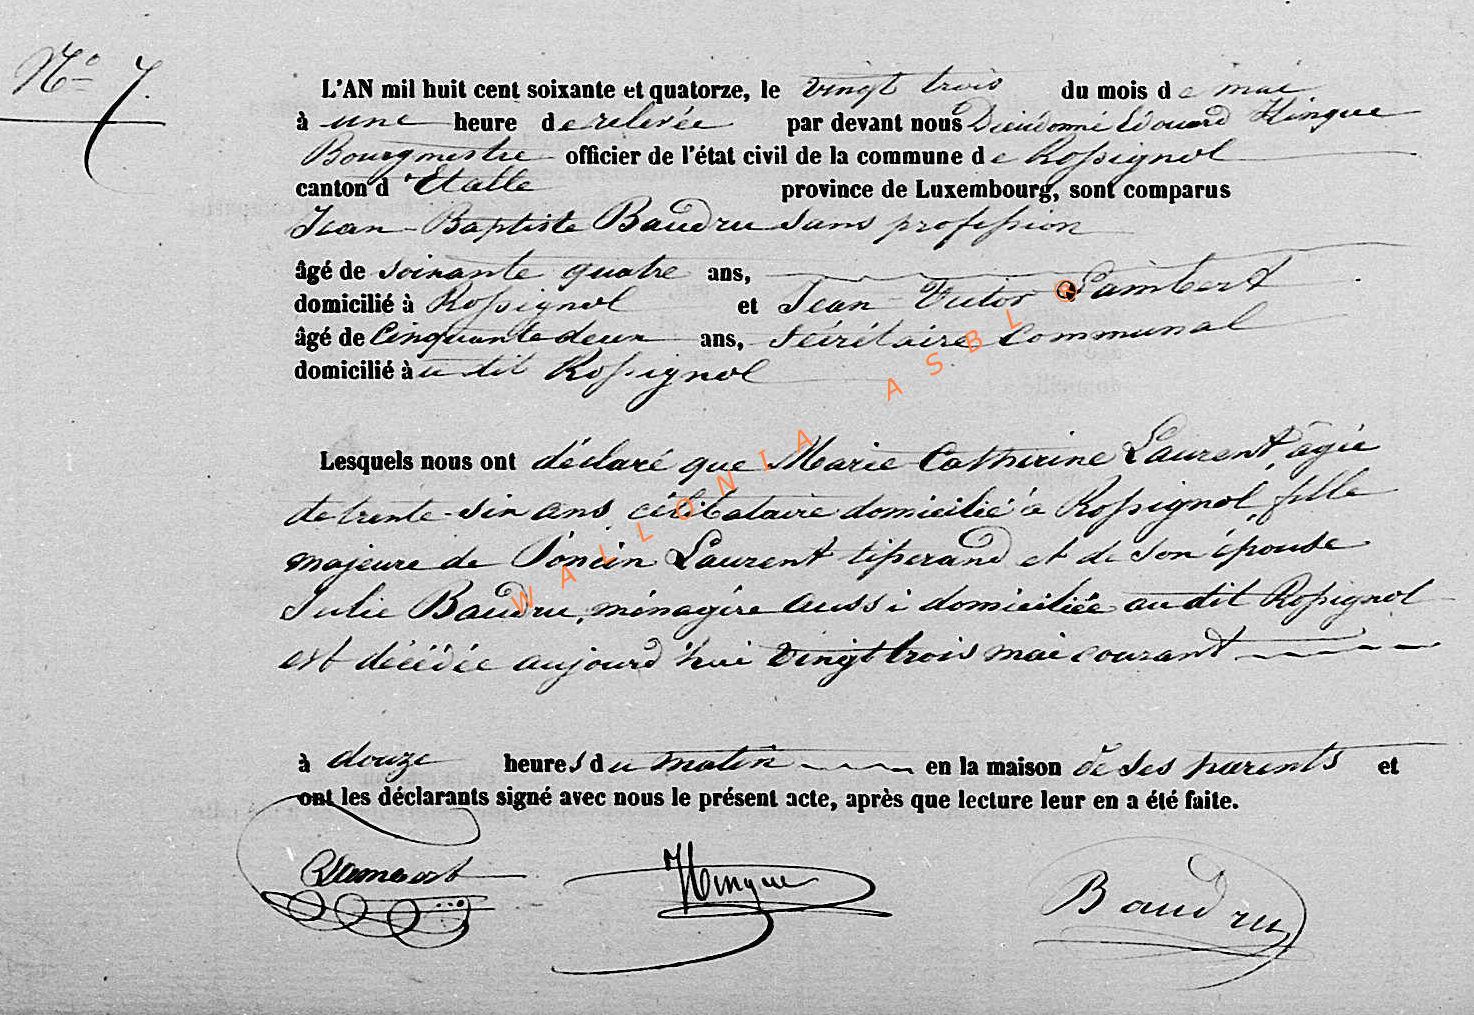 N° 7.
L'AN mil huit cent soixante et quatorze, le vingt trois du mois de mai
à une heure de relevée par devant nous Dieudonné Edouard Hinque
Bourgmestre officier de l'état civil de la commune de Rossignol
canton d'Etalle province de Luxembourg, sont comparus
Jean-Baptiste Baudru sans profession
âgé de soixante quatre ans,
domicilié à Rossignol et Jean-Victor Lambert
âgé de Cinquante deux ans, Sécrétaire Communal
domicilié au dit Rossignol
Lesquels nous ont déclaré que Marie Catherine Laurent, âgée
de trente-six ans célibataire domicilié à Rossignol, fille
majeure de Poncin Laurent tisserand et de son épouse
Julie Baudru, ménagère aussi domiciliée au dit Rossignol
est décédée aujourd'hui vingt trois mai courant
à douze heures du matin en la maison de ses parents et
ont les déclarants signé avec nous le présent acte, après que lecture leur en a été faite.
Lambert Hinque Baudru
WALLONIA ASBL